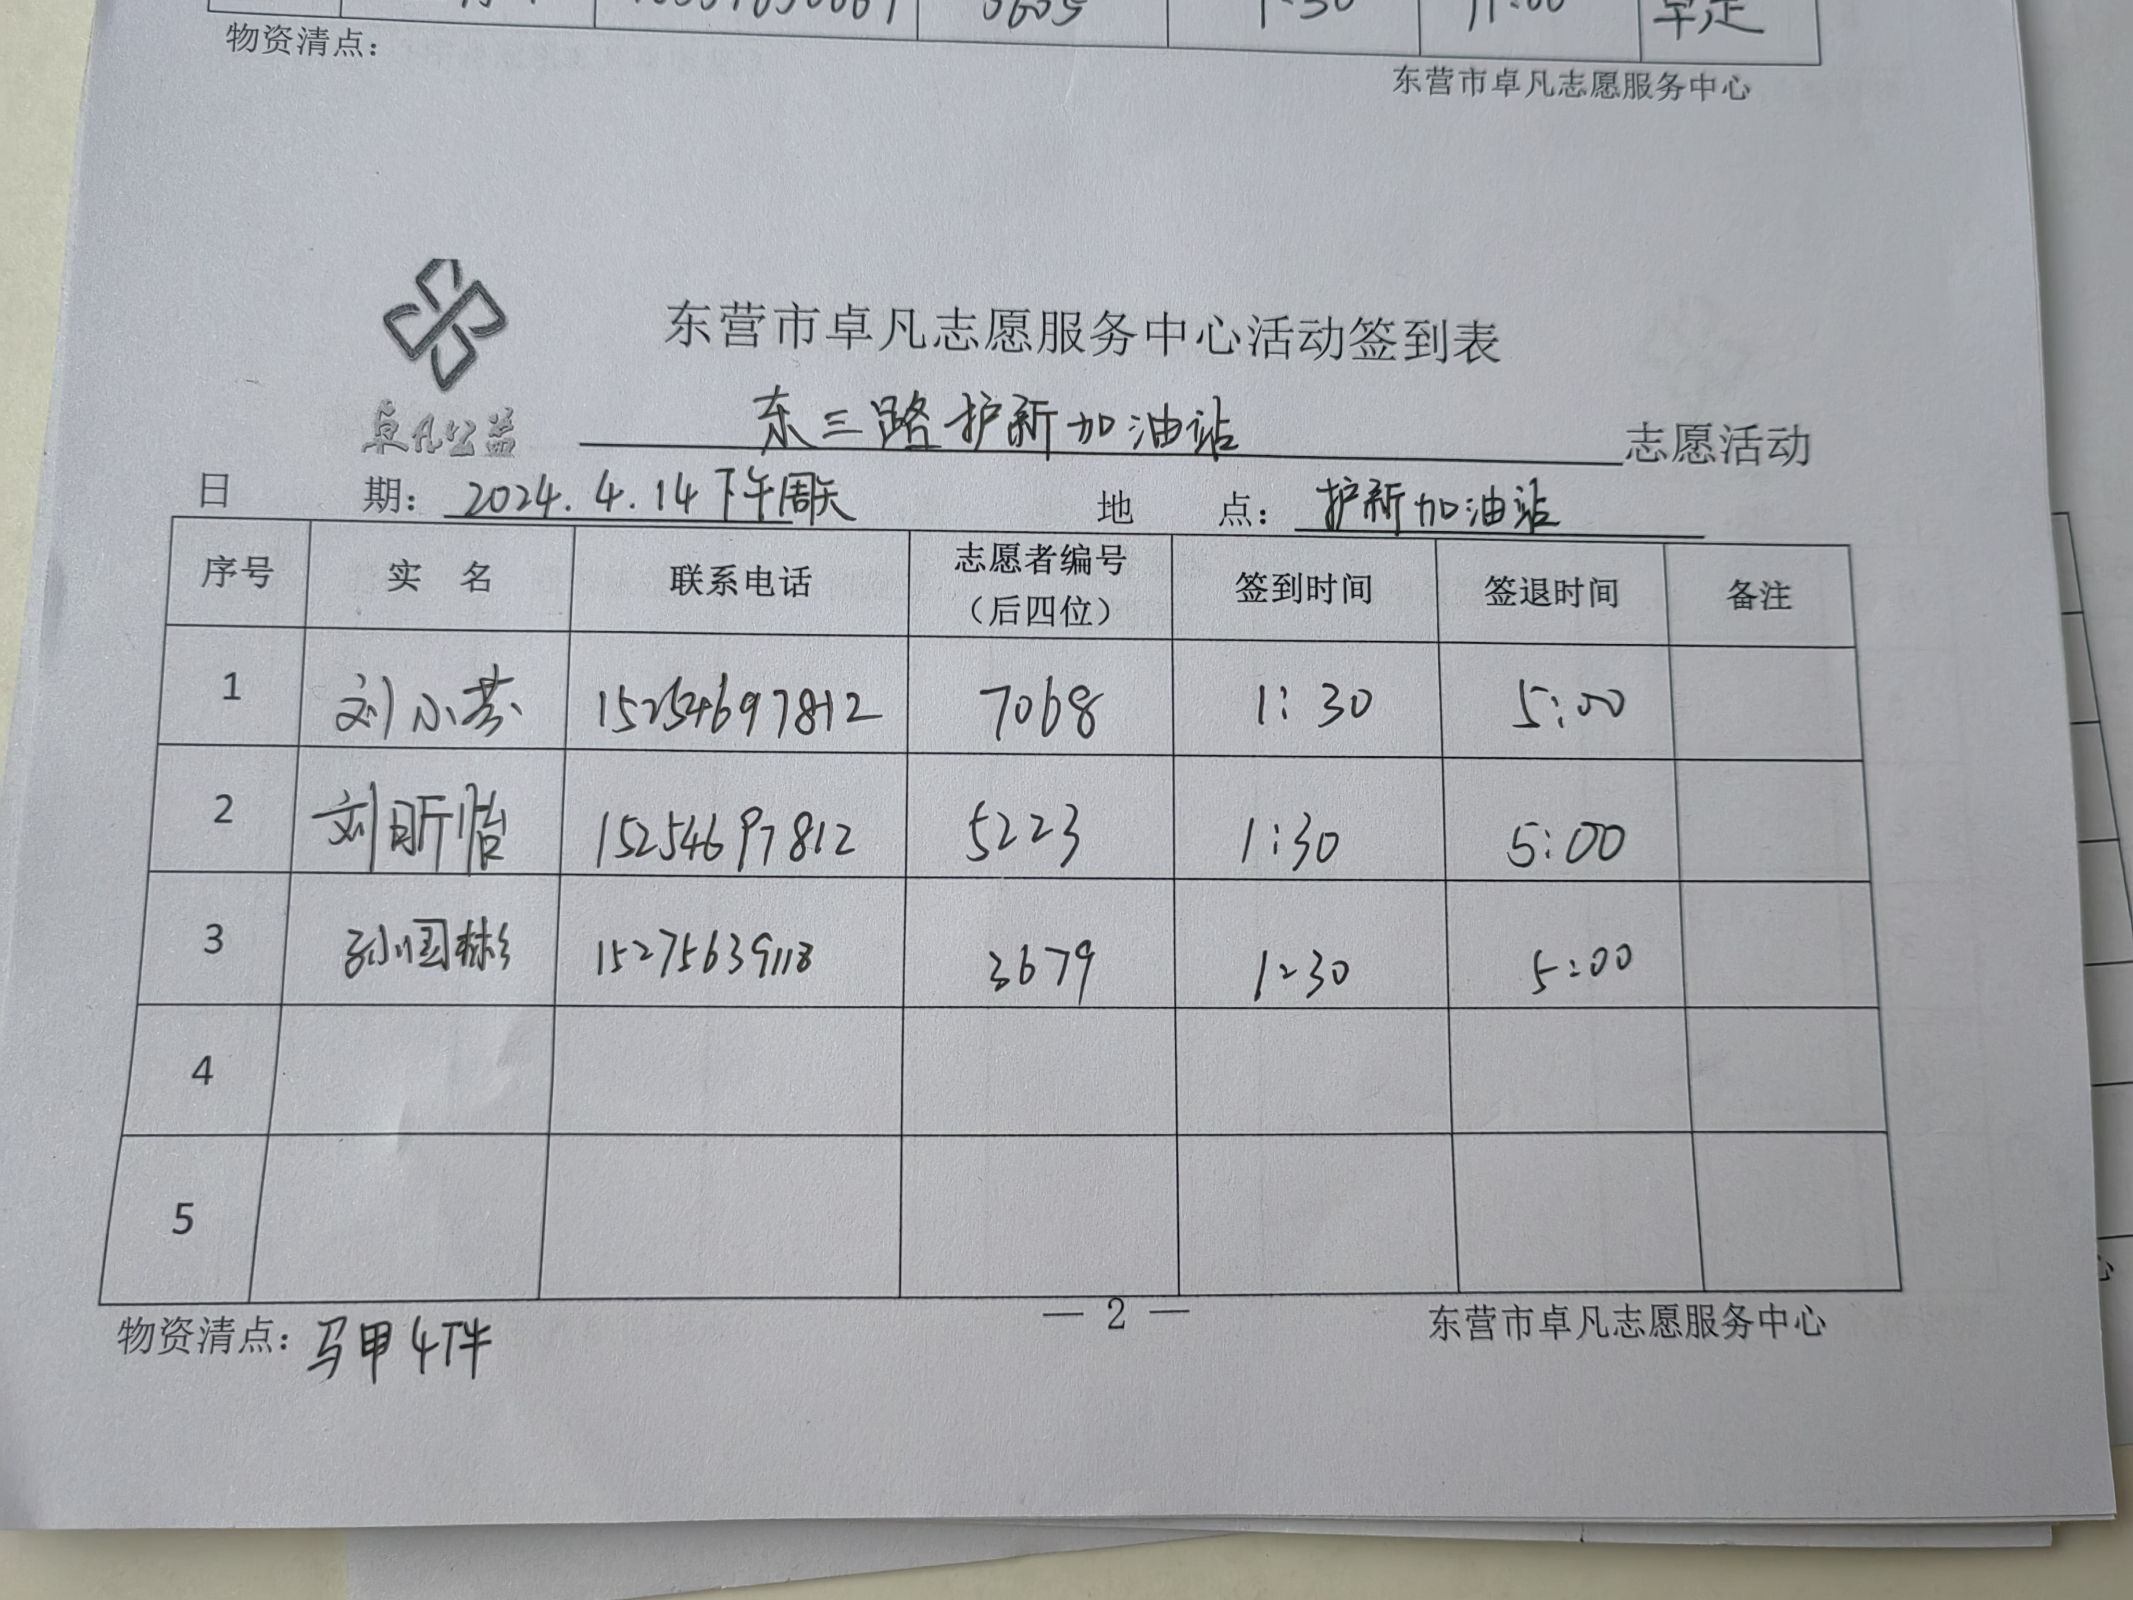 3605 1:30 11:00 早走
物资清点：
东营市卓凡志愿服务中心
东营市卓凡志愿服务中心活动签到表
卓凡公益 东三路护新加油站 志愿活动
日 期：2024.4.14下午周天 地 点：护新加油站
序号 实 名 联系电话 志愿者编号（后四位） 签到时间 签退时间 备注
1 刘小芬 15254697812 7068 1:30 5:00
2 刘昕怡 15254697812 5223 1:30 5:00
3 孙国彬 15275639118 3679 1:30 5:00
4
5
— 2 —
物资清点：马甲4件 东营市卓凡志愿服务中心